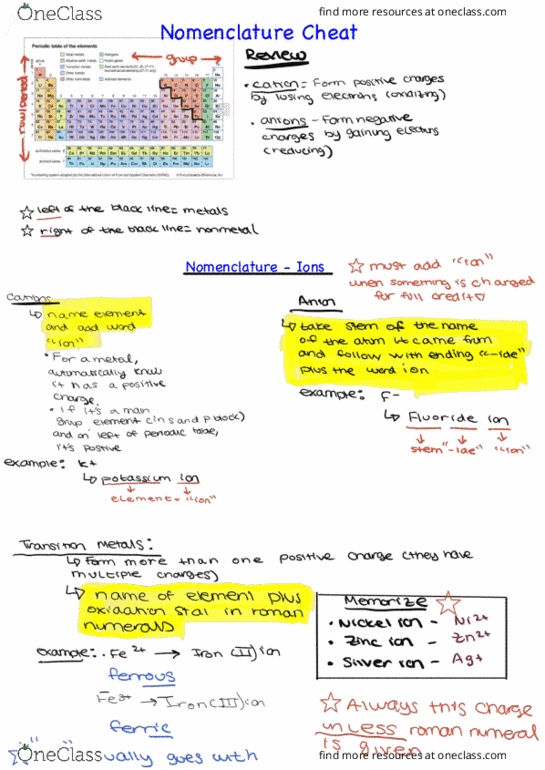 OneClass
find more resources at oneclass.com
Nomenclature Cheat
Periodic table of the elements
group
row/period
Review
• cation = Form positive charges
by losing electrons (oxidizing)
• anions - Form negative
charges by gaining electrons
(reducing)
☆ left of the black line = metals
☆ right of the black line = nonmetal
Nomenclature - Ions
☆ must add "ion"
when something is charged
for full credit
Cations
↳ name element
and add word
"ion"
• For a metal,
automatically know
it has a positive
charge.
• if it's a main
group element (in s and p block)
and on left of periodic table,
it's positive
example: K+
↳ potassium ion
element + "ion"
Anion
↳ take stem of the name
of the atom it came from
and follow with ending "-ide"
plus the word ion
example: F-
↳ Fluoride ion
stem "-ide" "ion"
Transition Metals:
↳ form more than one positive charge (they have
multiple charges)
↳ name of element plus
oxidation state in roman
numerals
example: • Fe 2+ → Iron (II) ion
ferrous
Fe3+ → Iron (III) ion
ferric
Memorize
• Nickel ion - Ni2+
• Zinc ion - Zn2+
• Silver ion - Ag+
☆ Always this charge
unless roman numeral
is given
goes with
OneClass
find more resources at oneclass.com